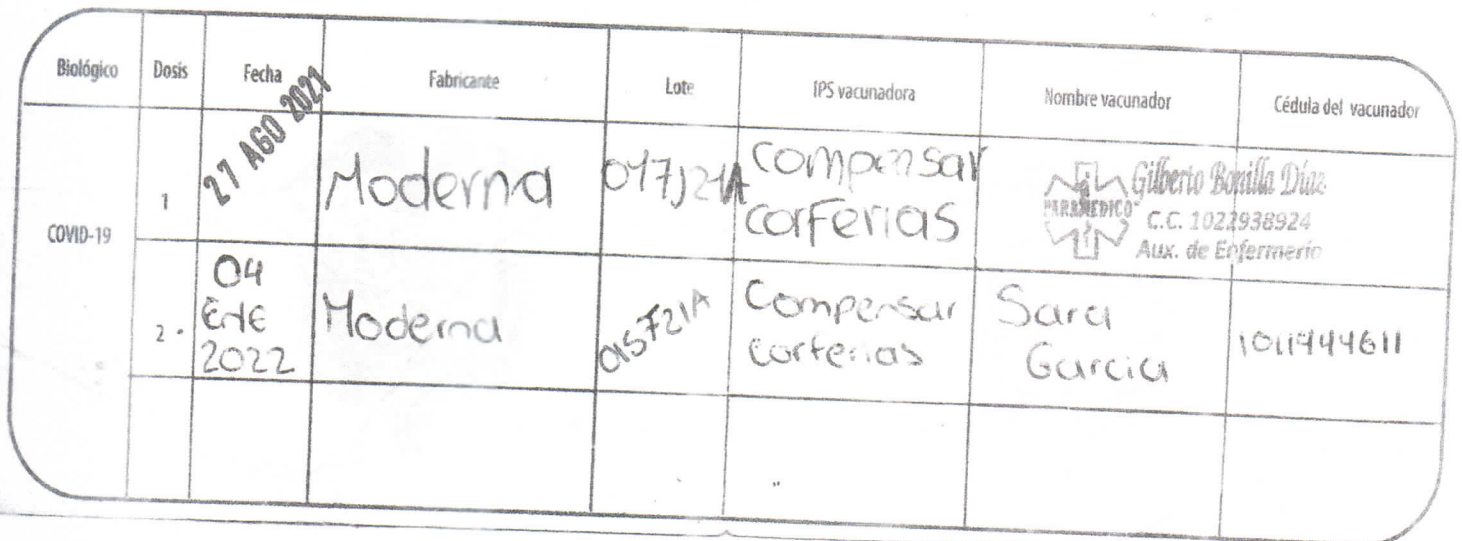 Biológico Dosis Fecha Fabricante Lote IPS vacunadora Nombre vacunador Cédula del vacunador
COVID-19
1 27 AGO 2021 Moderna 017J21A Compensar
corferias
Gilberto Bonilla Díaz
PARAMEDICO
C.C. 1022938924
Aux. de Enfermería
2 04
ENE
2022
Moderna 015F21A Compensar
corferias
Sara
Garcia
1011944611